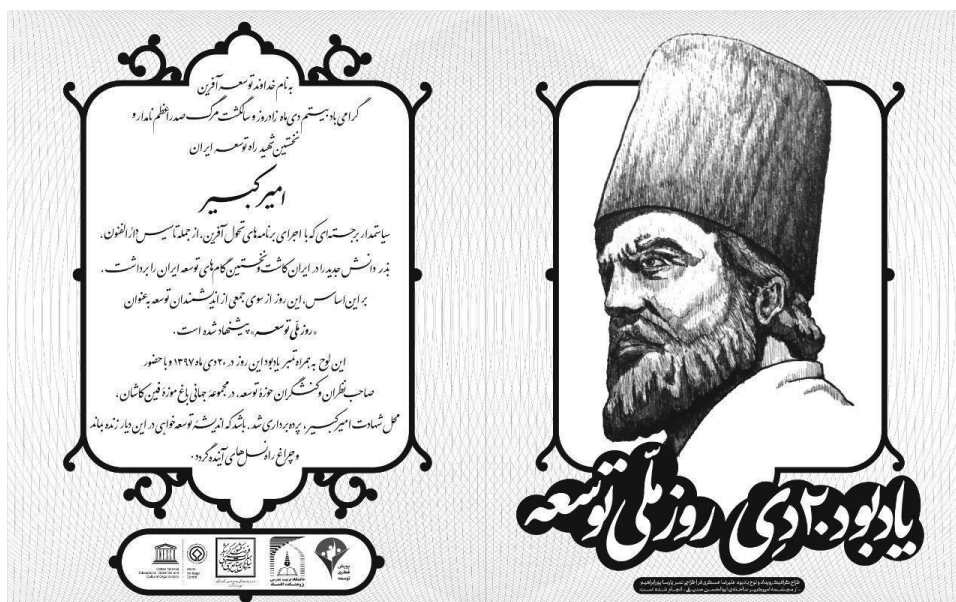 یادبود ۲۰ دی روز ملّی توسعه
به نام خداوند توسعه آفرین
گرامی باد بیستم دی ماه زادروز و سالگشت مرگ صدراعظم نامدار و
نخستین شهید راه توسعه ایران
امیرکبیر
سیاستمدار برجسته‌ای که با اجرای برنامه‌های تحول آفرین، از جمله تاسیس دارالفنون،
بذر دانش جدید را در ایران کاشت و نخستین گام‌های توسعه ایران را برداشت.
بر این اساس، این روز از سوی جمعی از اندیشمندان توسعه به عنوان
«روز ملی توسعه» پیشنهاد شده است.
این لوح به همراه تمبر یادبود این روز در ۲۰ دی ماه ۱۳۹۷ و با حضور
صاحب نظران و کنشگران حوزهٔ توسعه، در مجموعهٔ جهانی باغ موزهٔ فین کاشان،
محل شهادت امیرکبیر، پرده برداری شد. باشد که اندیشهٔ توسعه خواهی در این دیار زنده بماند
و چراغ راه نسل‌های آینده گردد.
پویش
فکری
توسعه
دانشگاه تربیت مدرس
United Nations
Educational, Scientific and
Cultural Organization
World
Heritage
Centre